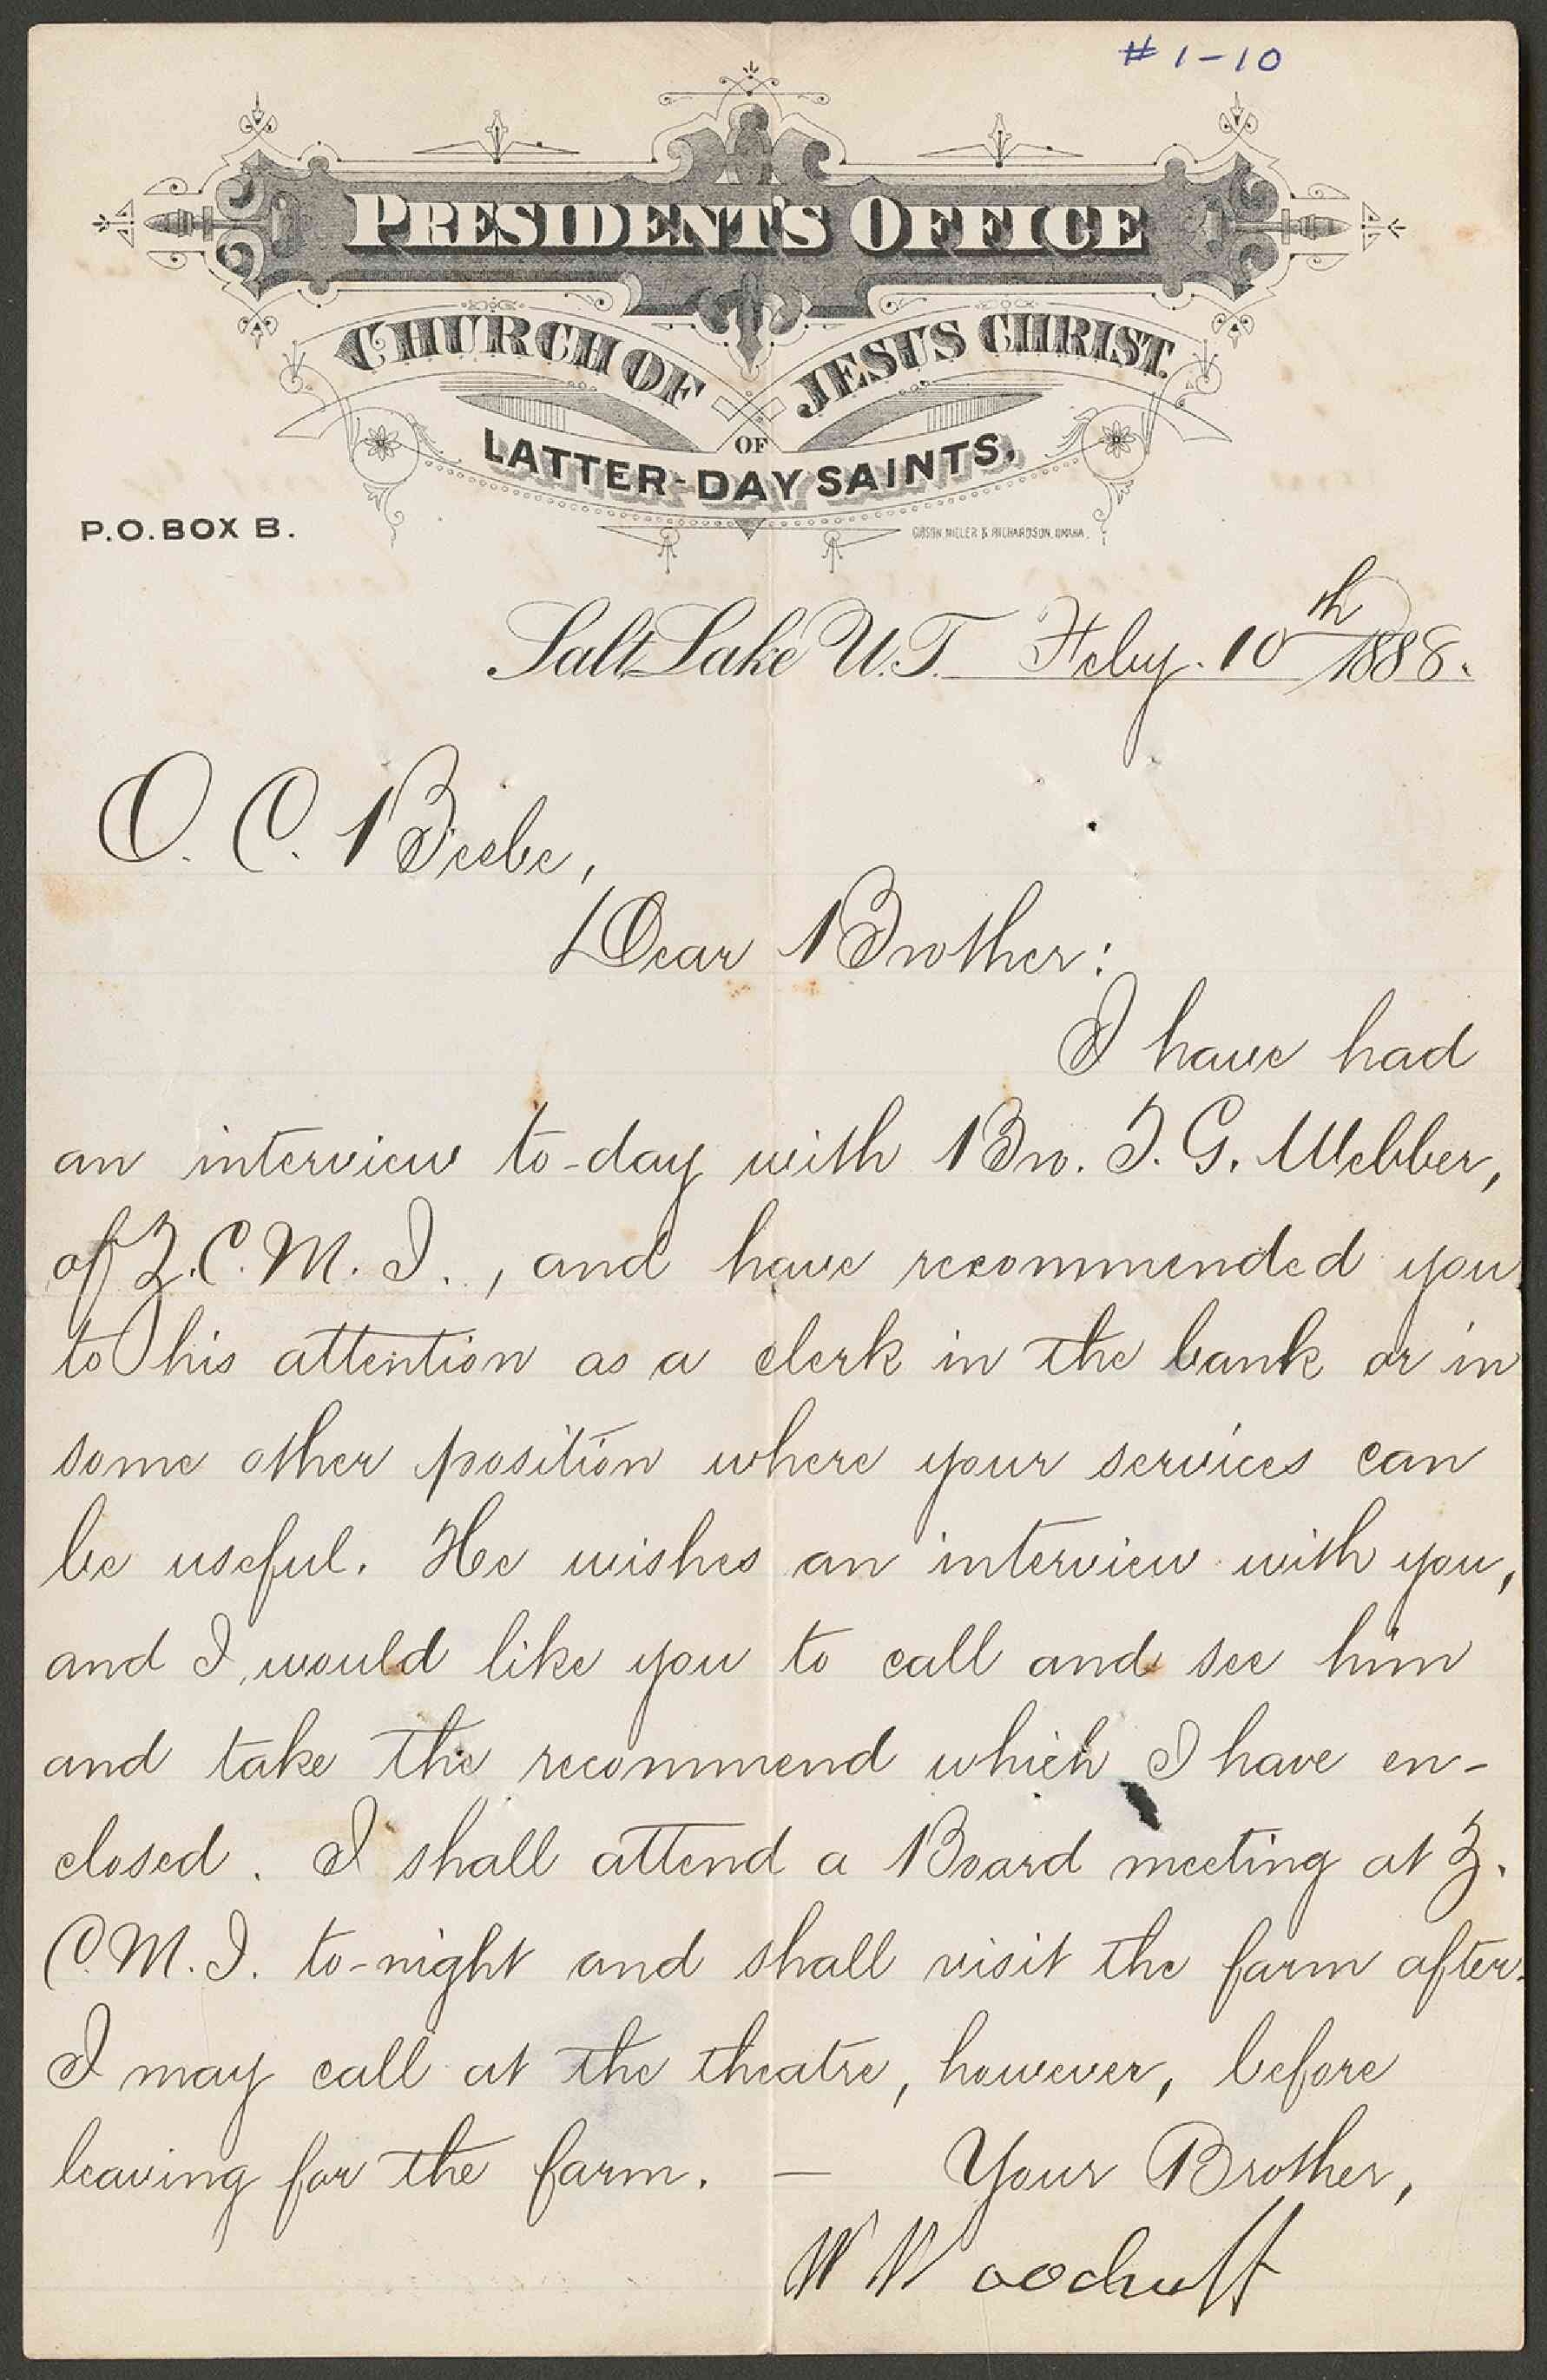 #1-10
PRESIDENT'S OFFICE
CHURCH OF JESUS CHRIST
OF
LATTER-DAY SAINTS,
P.O. BOX B.
GIBSON, MILLER & RICHARDSON, OMAHA.
Salt Lake U.T. Feby. 10th 1888.
O. C. Beebe,
Dear Brother:
I have had
an interview to-day with Bro. T. G. Webber,
of Z.C.M.I., and have recommended you
to his attention as a clerk in the bank or in
some other position where your services can
be useful. He wishes an interview with you,
and I would like you to call and see him
and take the recommend which I have en-
closed. I shall attend a Board meeting at Z.
C.M.I. to-night and shall visit the farm after.
I may call at the theatre, however, before
leaving for the farm. — Your Brother,
W Woodruff